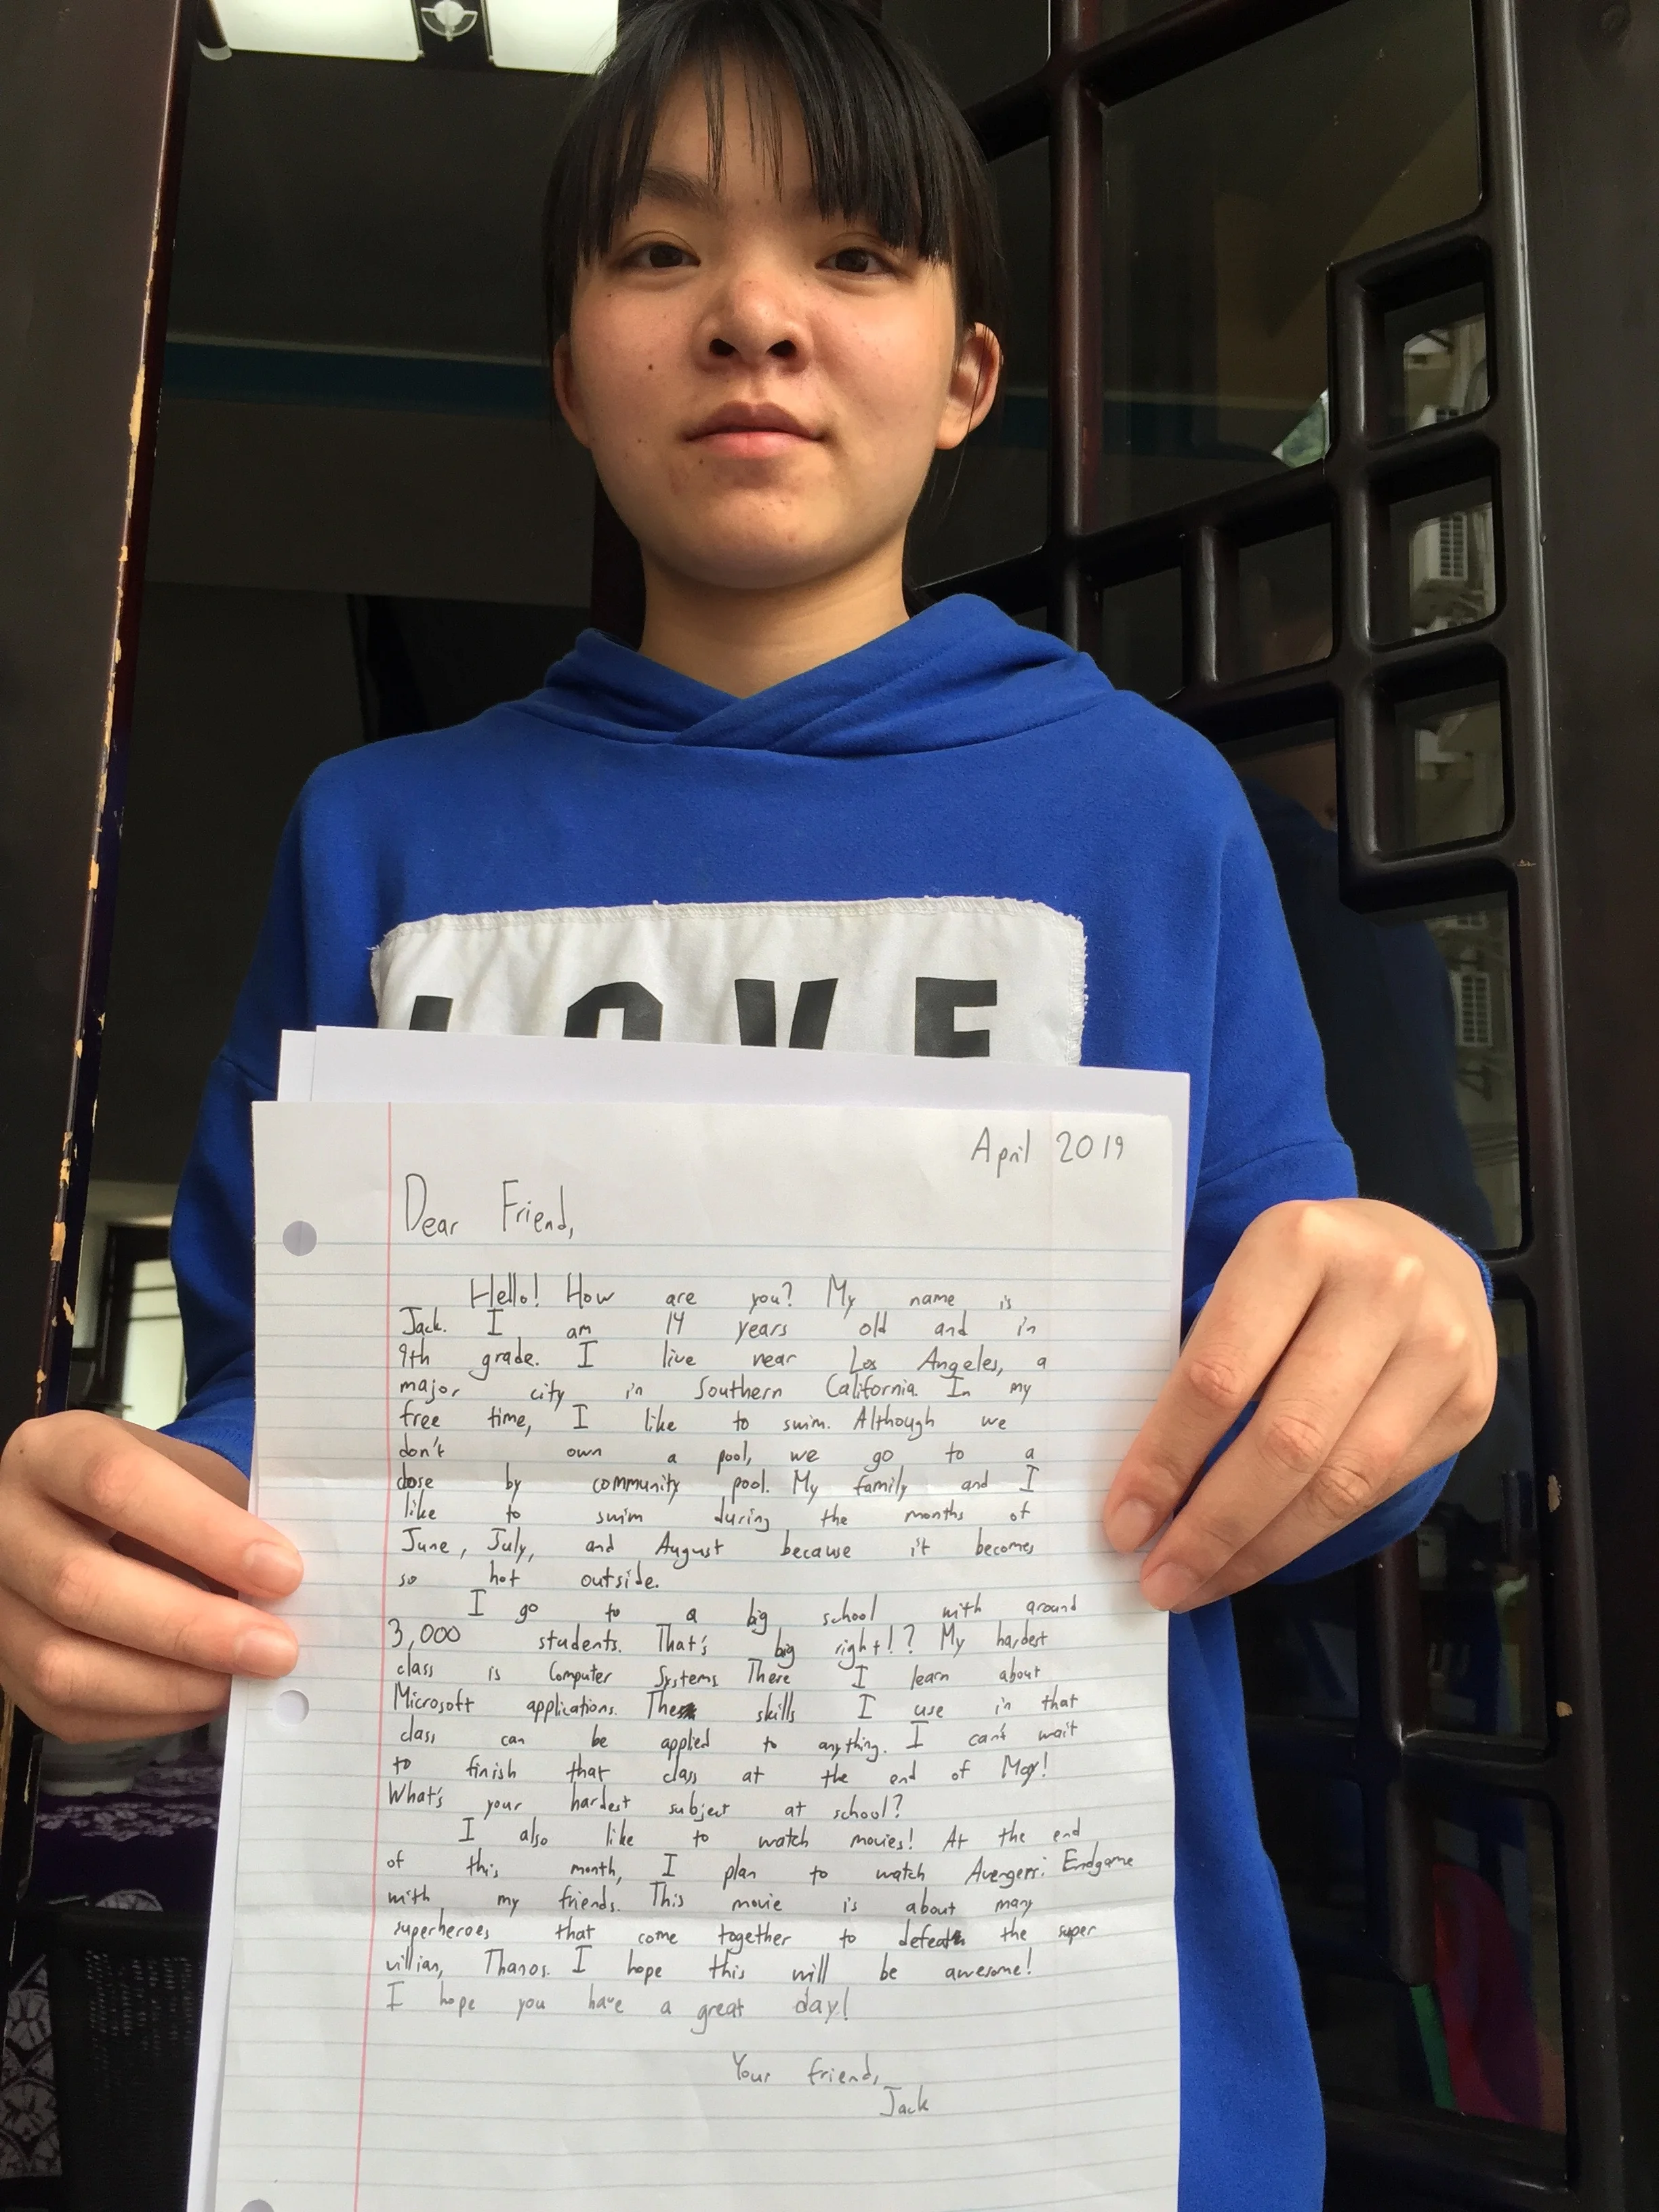 LOVE
April 2019
Dear Friend,
Hello! How are you? My name is
Jack. I am 14 years old and in
9th grade. I live near Los Angeles, a
major city in Southern California. In my
free time, I like to swim. Although we
don't own a pool, we go to a
close by community pool. My family and I
like to swim during the months of
June, July, and August because it becomes
so hot outside.
I go to a big school with around
3,000 students. That's big right!? My hardest
class is Computer Systems. There I learn about
Microsoft applications. The skills I use in that
class can be applied to anything. I can't wait
to finish that class at the end of May!
What's your hardest subject at school?
I also like to watch movies! At the end
of this month, I plan to watch Avengers: Endgame
with my friends. This movie is about many
superheroes that come together to defeat the super
villian, Thanos. I hope this will be awesome!
I hope you have a great day!
Your friend,
Jack